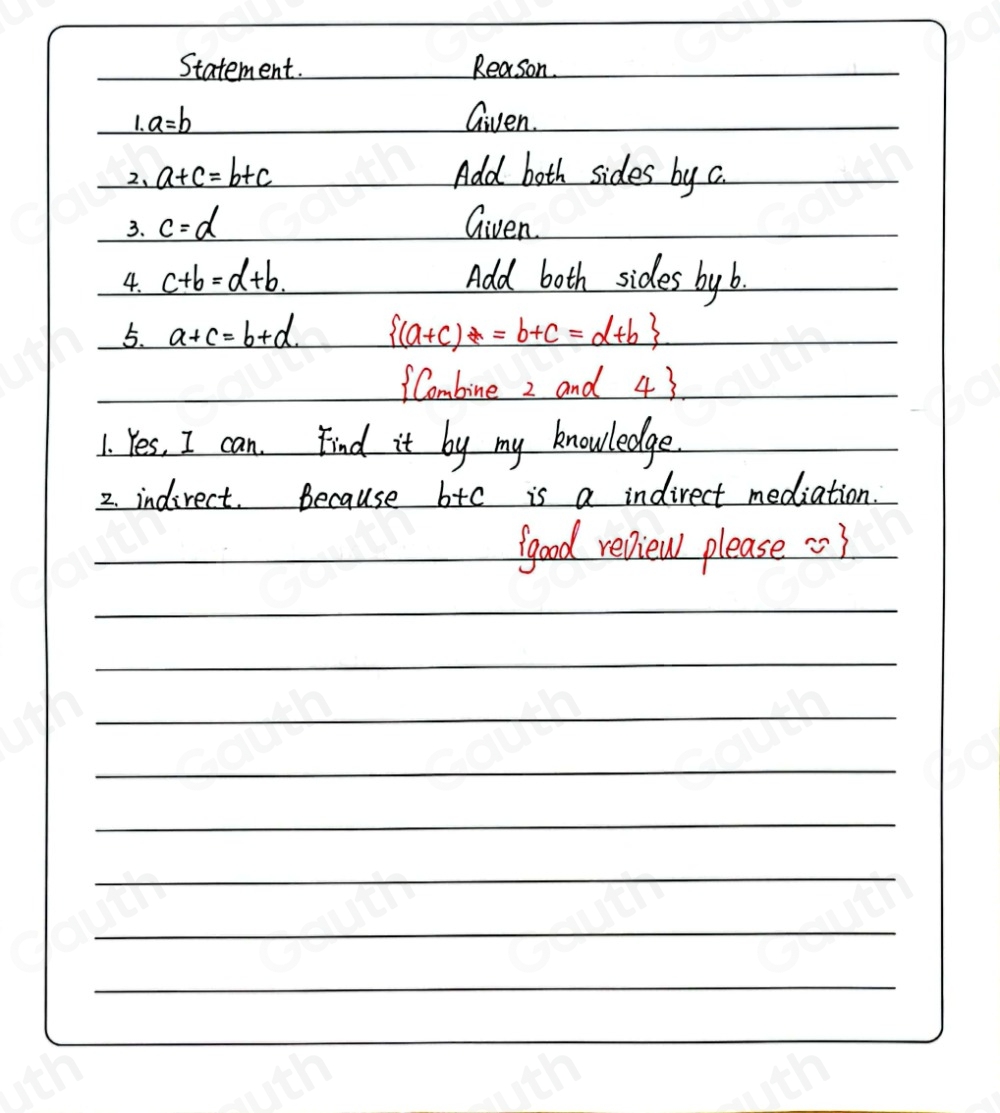 Statement. Reason.
1. a=b Given.
2、a+c=b+c Add both sides by c.
3. c=d Given.
4. c+b=d+b. Add both sides by b.
5. a+c=b+d. {(a+c) = b+c = d+b}
{Combine 2 and 4}.
1. Yes, I can. Find it by my knowledge.
2. indirect. Because b+c is a indirect mediation.
{good review please}
Gauth